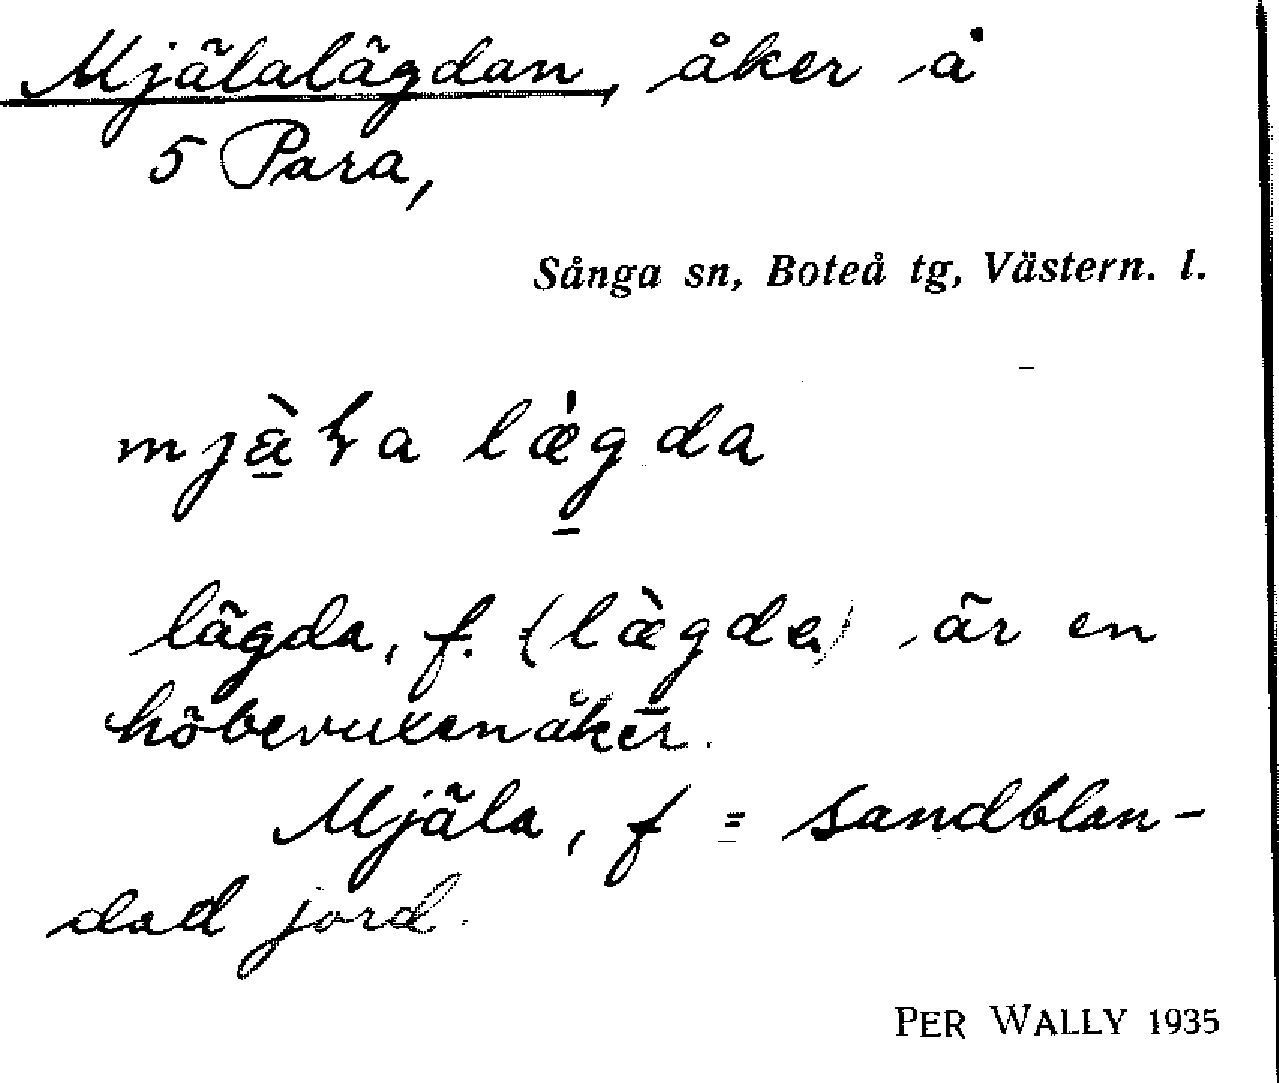 Mjälalägdan, åker å
5 Para,
Sånga sn, Boteå tg, Västern. l.
mjä̀ɽa lǽgda
lägda, f. (læ̀gda) är en
höbevuxen åker.
Mjäla, f = sandblan-
dad jord.
PER WALLY 1935